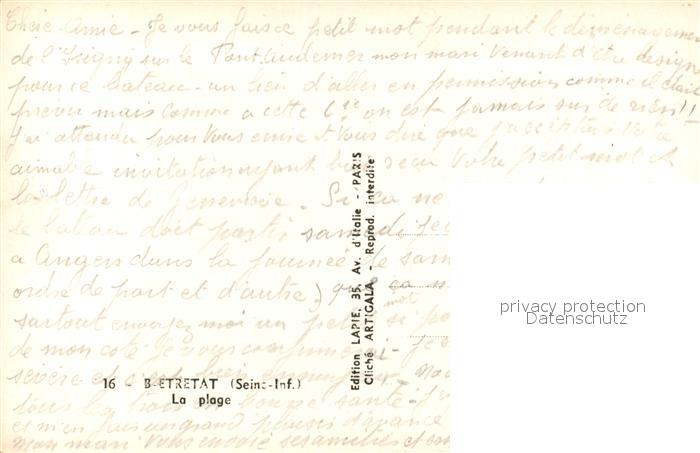 Chère Amie - Je vous faisce petit mot pendant le déménagement
de l'Isigny sur le Pontaudemer mon mari venant d'être désigné
pour ce bateau - au lieu d'aller en permission comme il était
prévu mais comme a cette Cie on est jamais sur de rien!!
J'ai attendu pour vous écrire et vous dire que j'acceptais votre
aimable invitation ayant bien reçu votre petit mot et
la lettre de - Si ça ne
le bateau doit partir samedi je
a Angers dans la journée de sam
ordre de part et d'autre) ça
surtout envoyez moi un petit mot si
de mon coté je vous
sévère et c'est bien
tous les trois en bonne santé - J'
et m'en fais un grand plaisir d'avance
mon mari vous envoie ses amitiés et
16 - B-ETRETAT (Seine-Inf.)
La plage
Edition LAPIE, 35, Av. d'Italie - PARIS
Cliché ARTIGALA - Reprod. interdite
privacy protection
Datenschutz